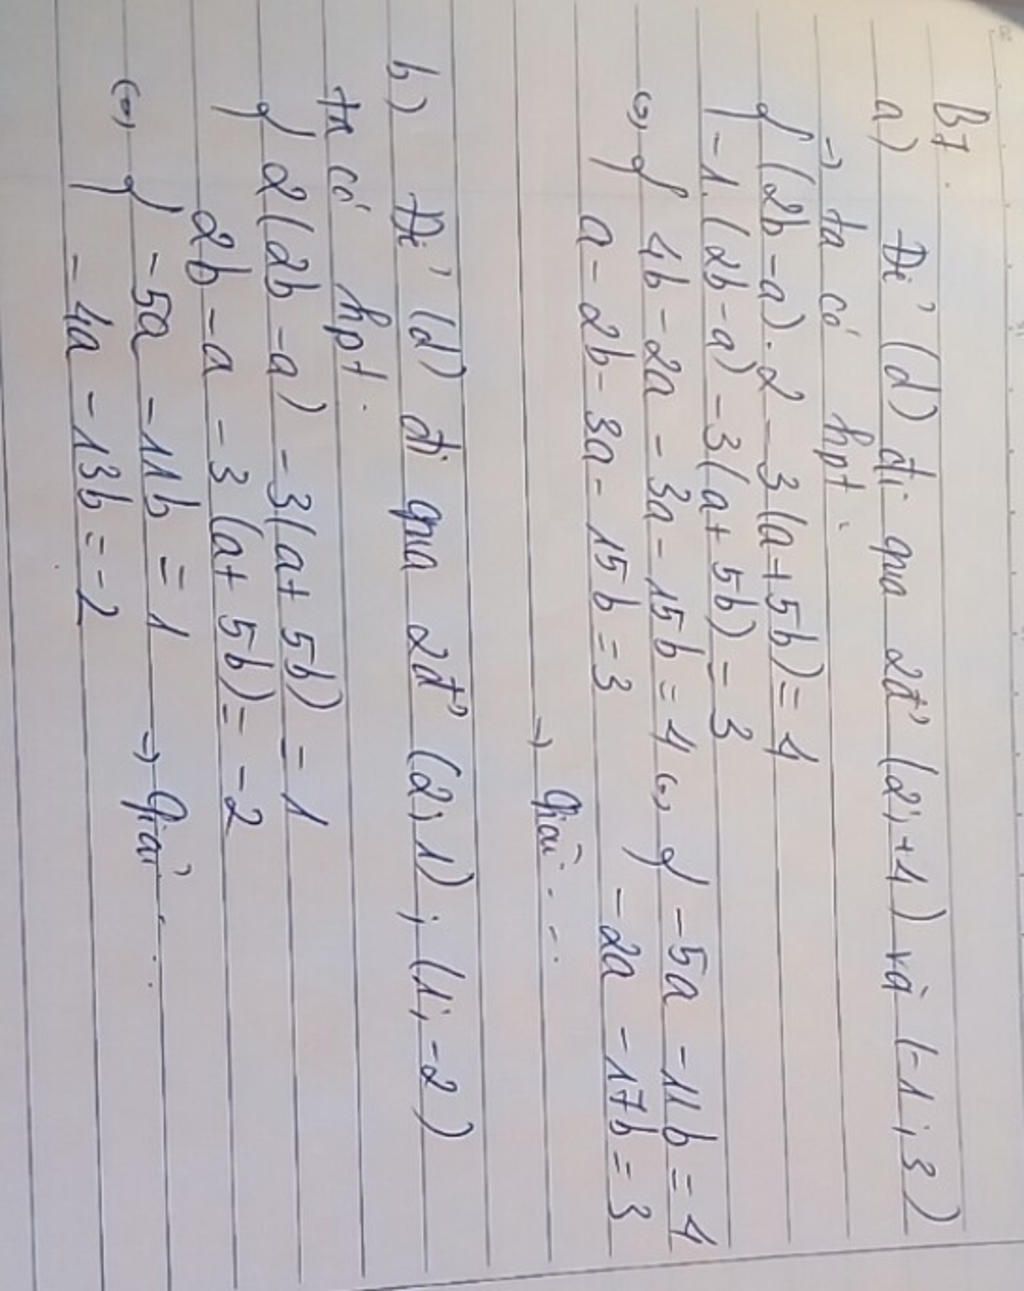 B7.
a) Để (d) đi qua 2đ' (2;+4) và (-1;3)
→ ta có hpt:
{ (2b-a).2 - 3(a+5b) = 4
-1.(2b-a) - 3(a+5b) = 3
<=> { 4b - 2a - 3a - 15b = 4 <=> { -5a - 11b = 4
a - 2b - 3a - 15b = 3 -2a - 17b = 3
→ Giải...
b) Để (d) đi qua 2đ' (2;1); (1;-2)
ta có hpt.
{ 2(2b-a) - 3(a+5b) = 1
2b - a - 3(a+5b) = -2
<=> { -5a - 11b = 1 → Giải...
-4a - 13b = -2